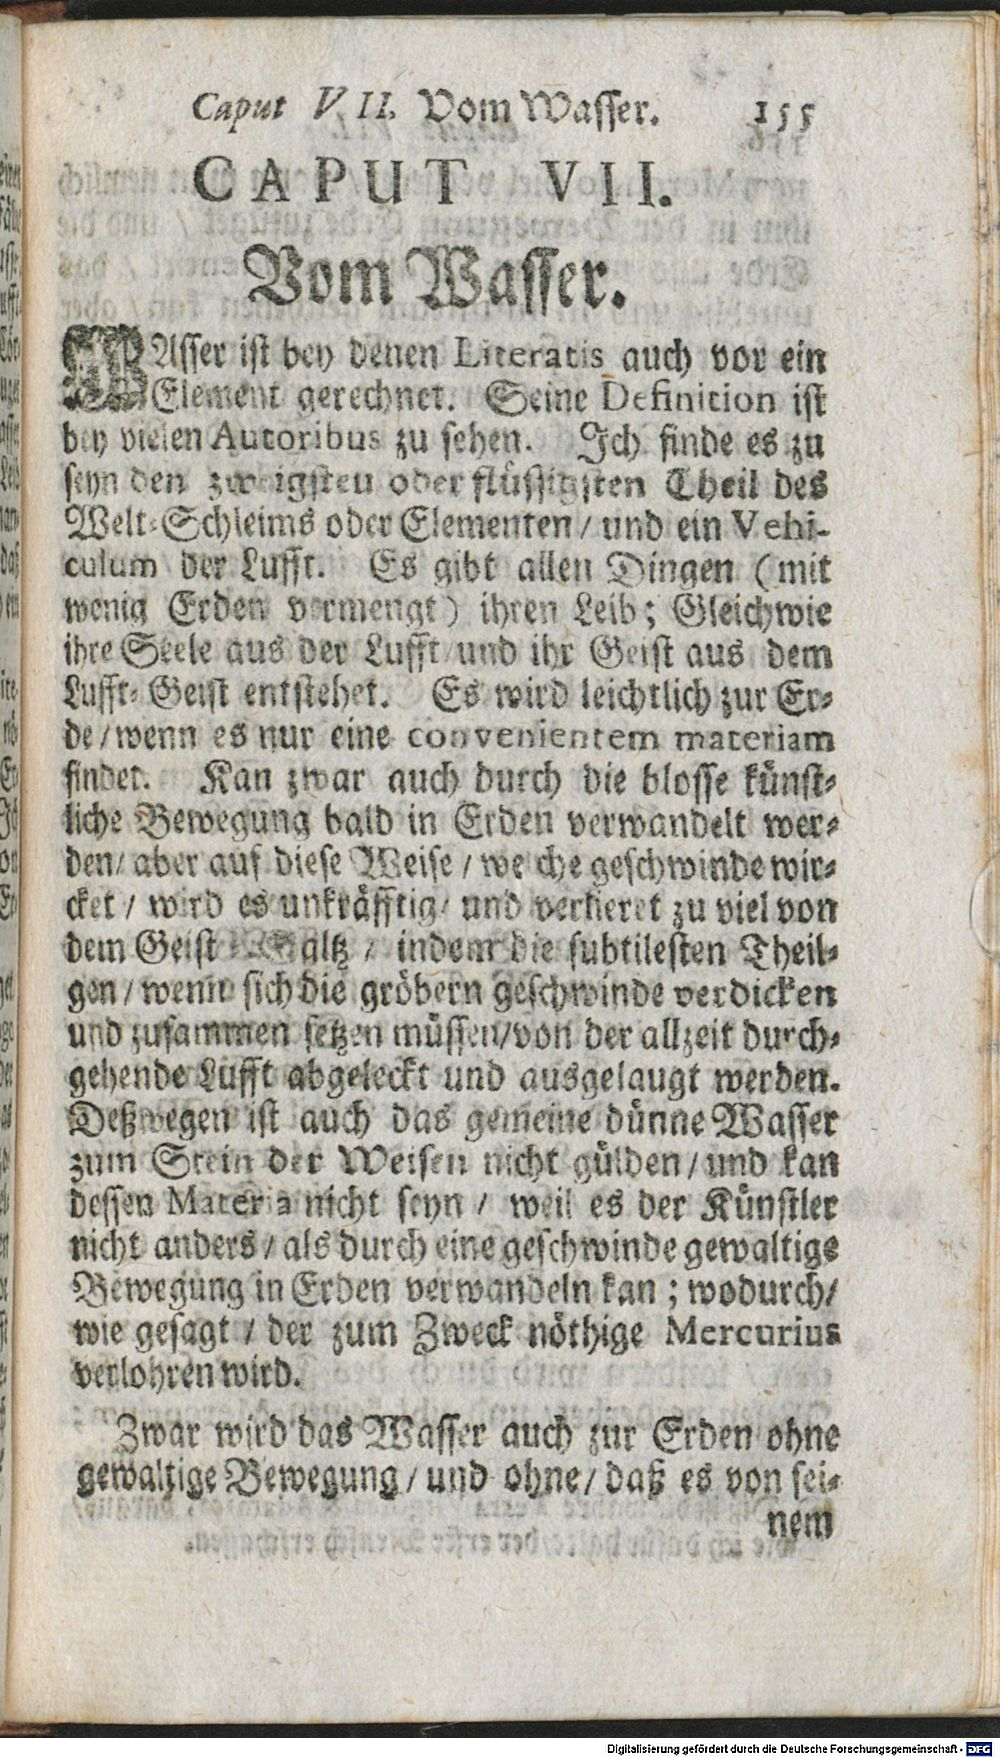 Caput VII. Vom Wasser. 155
CAPUT VII.
Vom Wasser.
WAsser ist bey denen Literatis auch vor ein
Element gerechnet. Seine Definition ist
bey vielen Autoribus zu sehen. Ich finde es zu
seyn den zweigsten oder flüssigsten Theil des
Welt-Schleims oder Elementen / und ein Vehi-
culum der Lufft. Es gibt allen Dingen (mit
wenig Erden vermengt) ihren Leib; Gleichwie
ihre Seele aus der Lufft und ihr Geist aus dem
Lufft-Geist entstehet. Es wird leichtlich zur Er-
de / wenn es nur eine convenientem materiam
findet. Kan zwar auch durch die blosse künst-
liche Bewegung bald in Erden verwandelt wer-
den / aber auf diese Weise / welche geschwinde wir-
cket / wird es unkräfftig / und verlieret zu viel von
dem Geist Saltz / indem die subtilesten Theil-
gen / wenn sich die gröbern geschwinde verdicken
und zusammen setzen müssen / von der allzeit durch-
gehende Lufft abgeleckt und ausgelaugt werden.
Deßwegen ist auch das gemeine dünne Wasser
zum Stein der Weisen nicht gülden / und kan
dessen Materia nicht seyn / weil es der Künstler
nicht anders / als durch eine geschwinde gewaltige
Bewegung in Erden verwandeln kan; wodurch /
wie gesagt / der zum Zweck nöthige Mercurius
verlohren wird.
Zwar wird das Wasser auch zur Erden ohne
gewaltige Bewegung / und ohne / daß es von sei-
nem
Digitalisierung gefördert durch die Deutsche Forschungsgemeinschaft - DFG